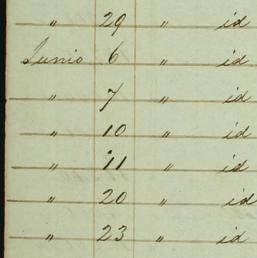 " 29 " id
Junio 6 " id
" 7 " id
" 10 " id
" 11 " id
" 20 " id
" 23 " id